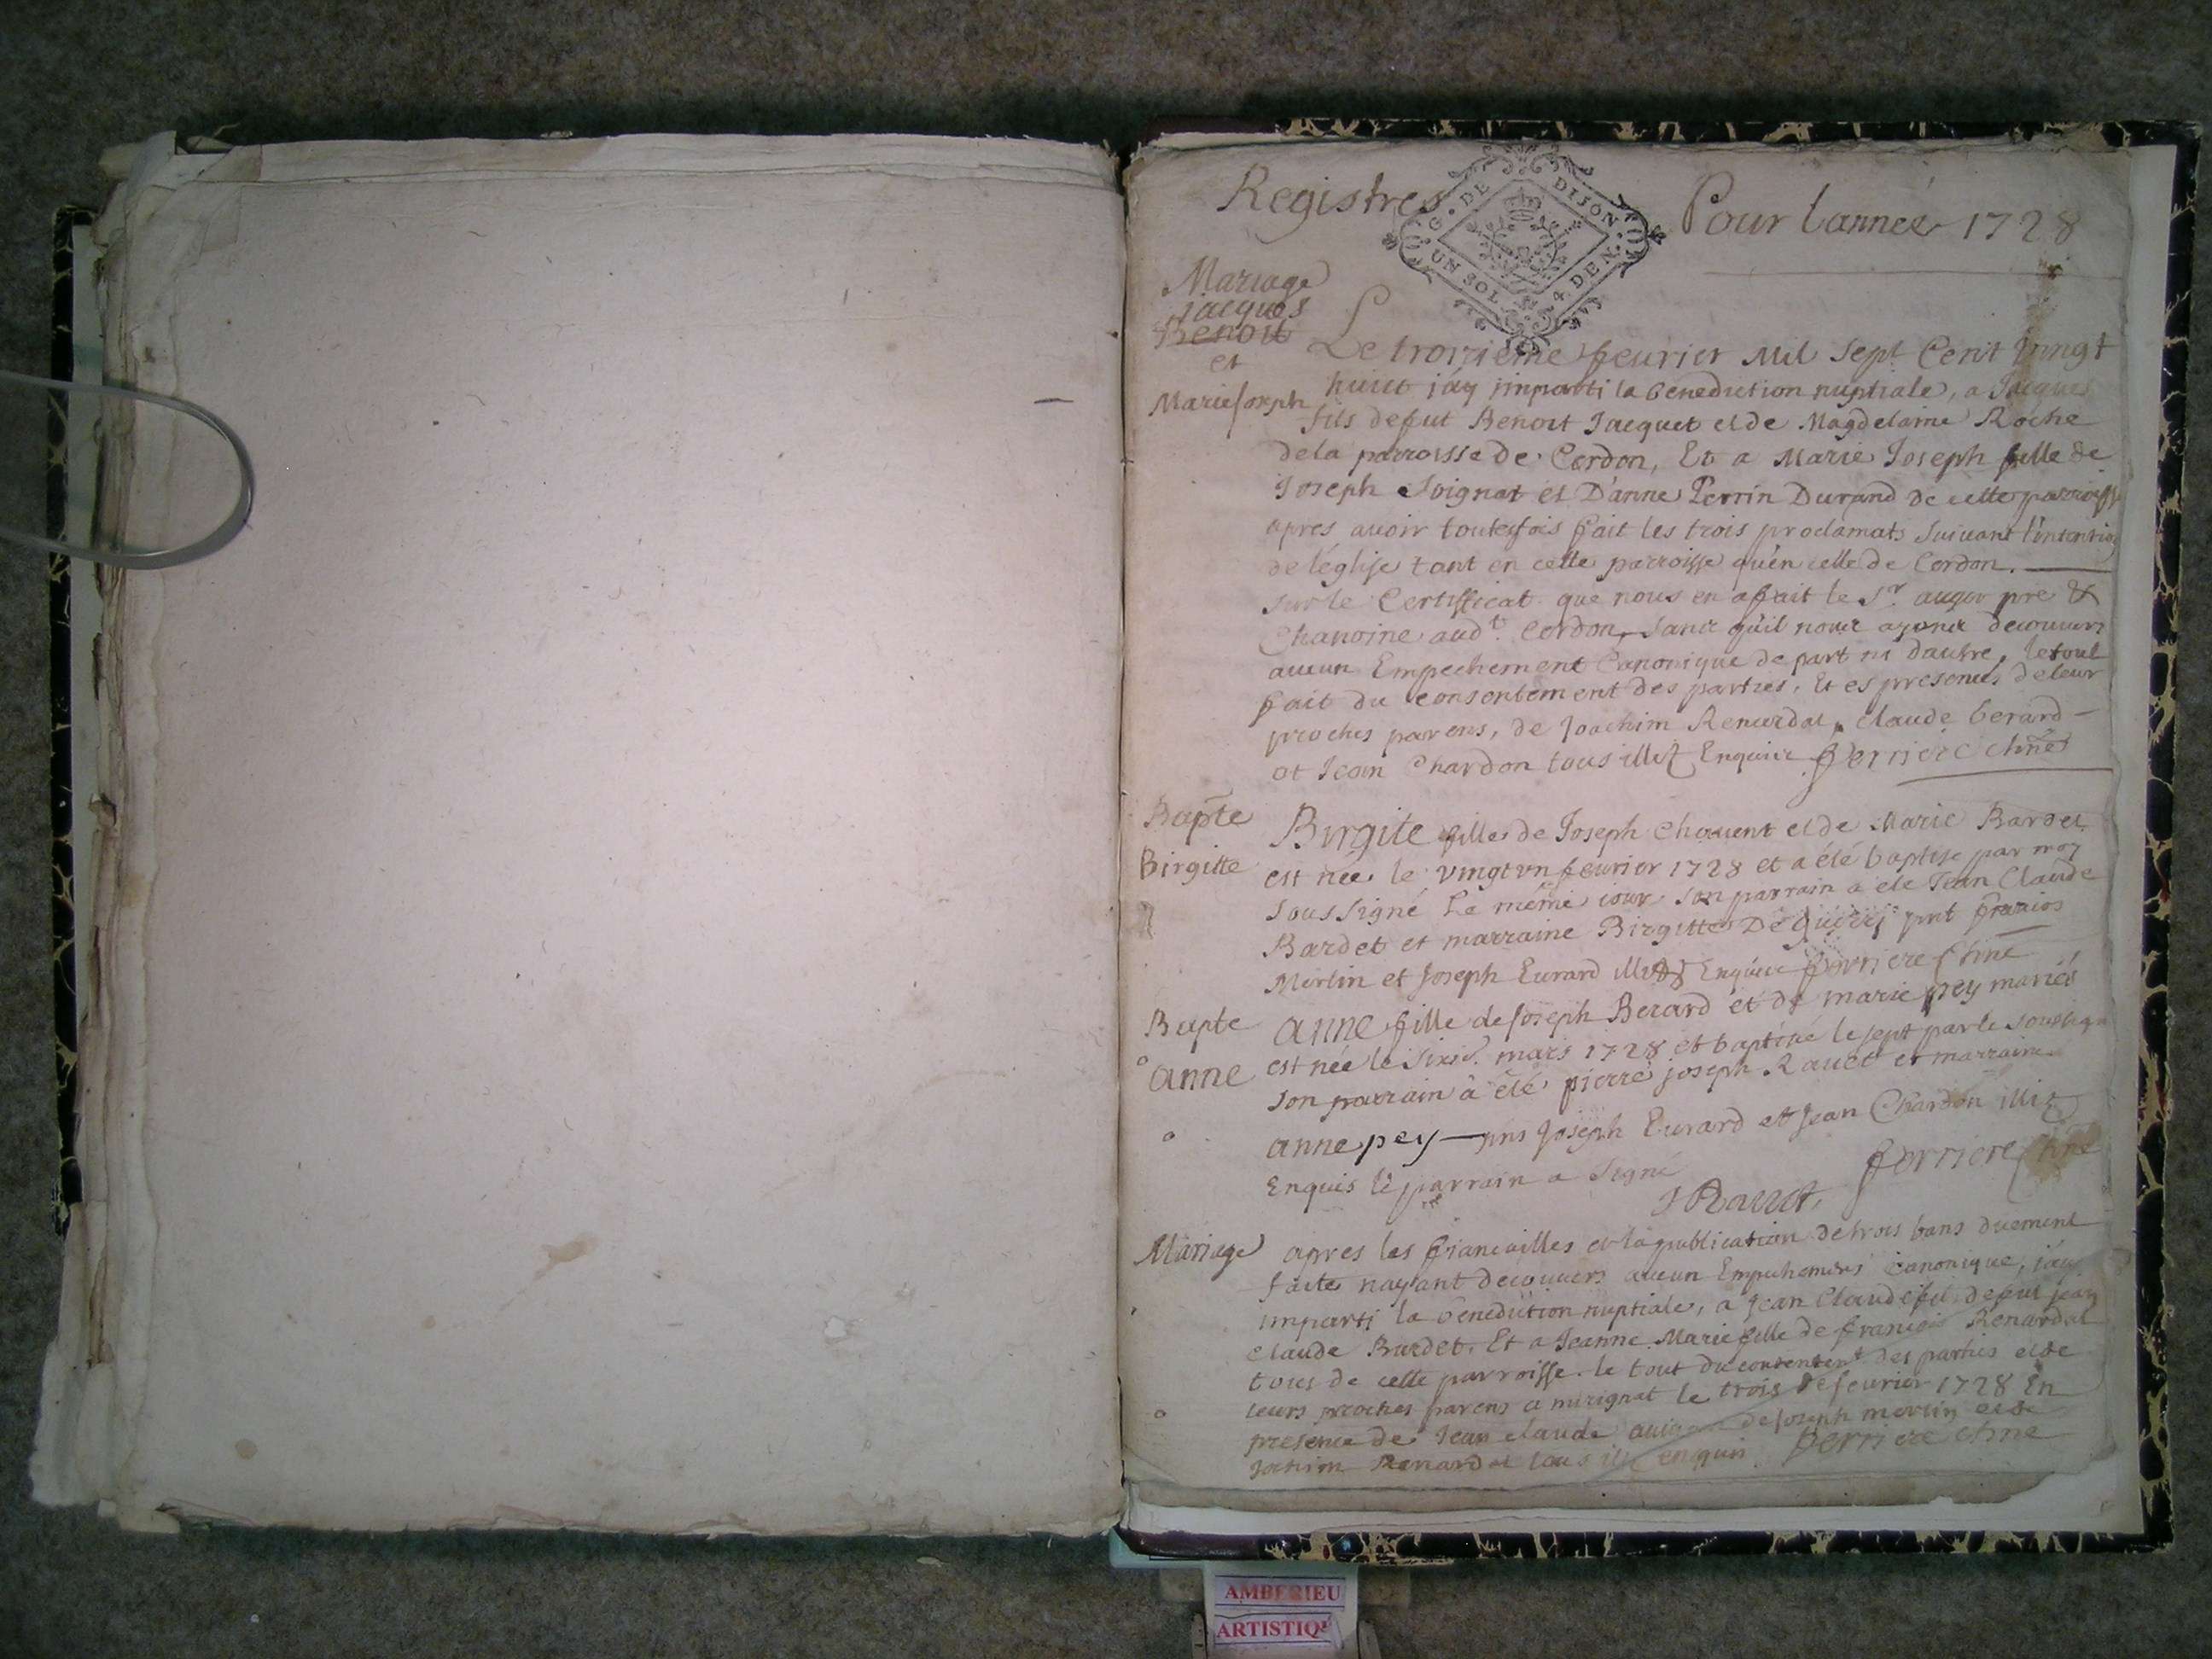 Registres
G. DE DIJON
UN SOL 4 DEN.
Pour l'année 1728
Mariage
jacques
Benoit
et
Marie Joseph
Le troizieme feurier Mil Sept Cent vingt
huict j'ay imparti la benediction nuptiale, a Jacques
fils de fut Benoit Jacquet et de Magdelaine Roche
de la parroisse de Cerdon, Et a Marie Joseph fille de
Joseph Soignat et D'anne Perrin Durand de cette parroisse
apres avoir toutesfois fait les trois proclamats suivant l'intention
de l'église tant en cette parroisse qu'en celle de Cerdon.
sur le Certifficat que nous en a fait le Sr. auger pre &
Chanoine audt. Cerdon, sans qu'il nous ayons decouvers
aucun Empechement Canonique de part ni d'autre, le tout
fait du consentement des parties, Et es presences de leur
proches parens, de Joachim Renardat, Claude berard
et Jean Chardon tous illit Enquis ferriere chne
Bapte
Birgitte
Birgite fille de Joseph Chauent et de Marie Bardet
est née le vingt vn feurier 1728 et a été baptise par moy
soussigné Le même iour son parrain a ete Jean Claude
Bardet et marraine Birgitte pnt francois
Merlin et Joseph Eurard Enquis ferriere Chne
Bapte
anne
anne fille de Joseph Berard et de marie pey mariés
est née le sixie. mars 1728 et baptisé le sept par le soussigne
son parrain a été pierre joseph Rauet et marraine
anne pey pns Joseph Eurard et Jean Chardon illit
Enquis le parrain a signé ferriere Chne
Mariage
apres les fiancailles et la publication de trois bans duement
faite nayant decouvers aucun Empechemens Canonique, j'ay
imparti la benediction nuptiale, a Jean Claude fils de fut jean
Claude Bardet, Et a Jeanne Marie fille de francois Renardat
tous de cette parroisse. le tout du consentemt des parties et de
leurs proches parens a mirignat le trois de feurier 1728 En
presence de Jean claude de Joseph merlin et de
Renardat tous enquis ferriere chne
AMBERIEU
ARTISTIQU